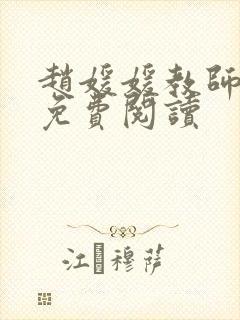 趙媛媛教師
免費閱讀
江穆萨